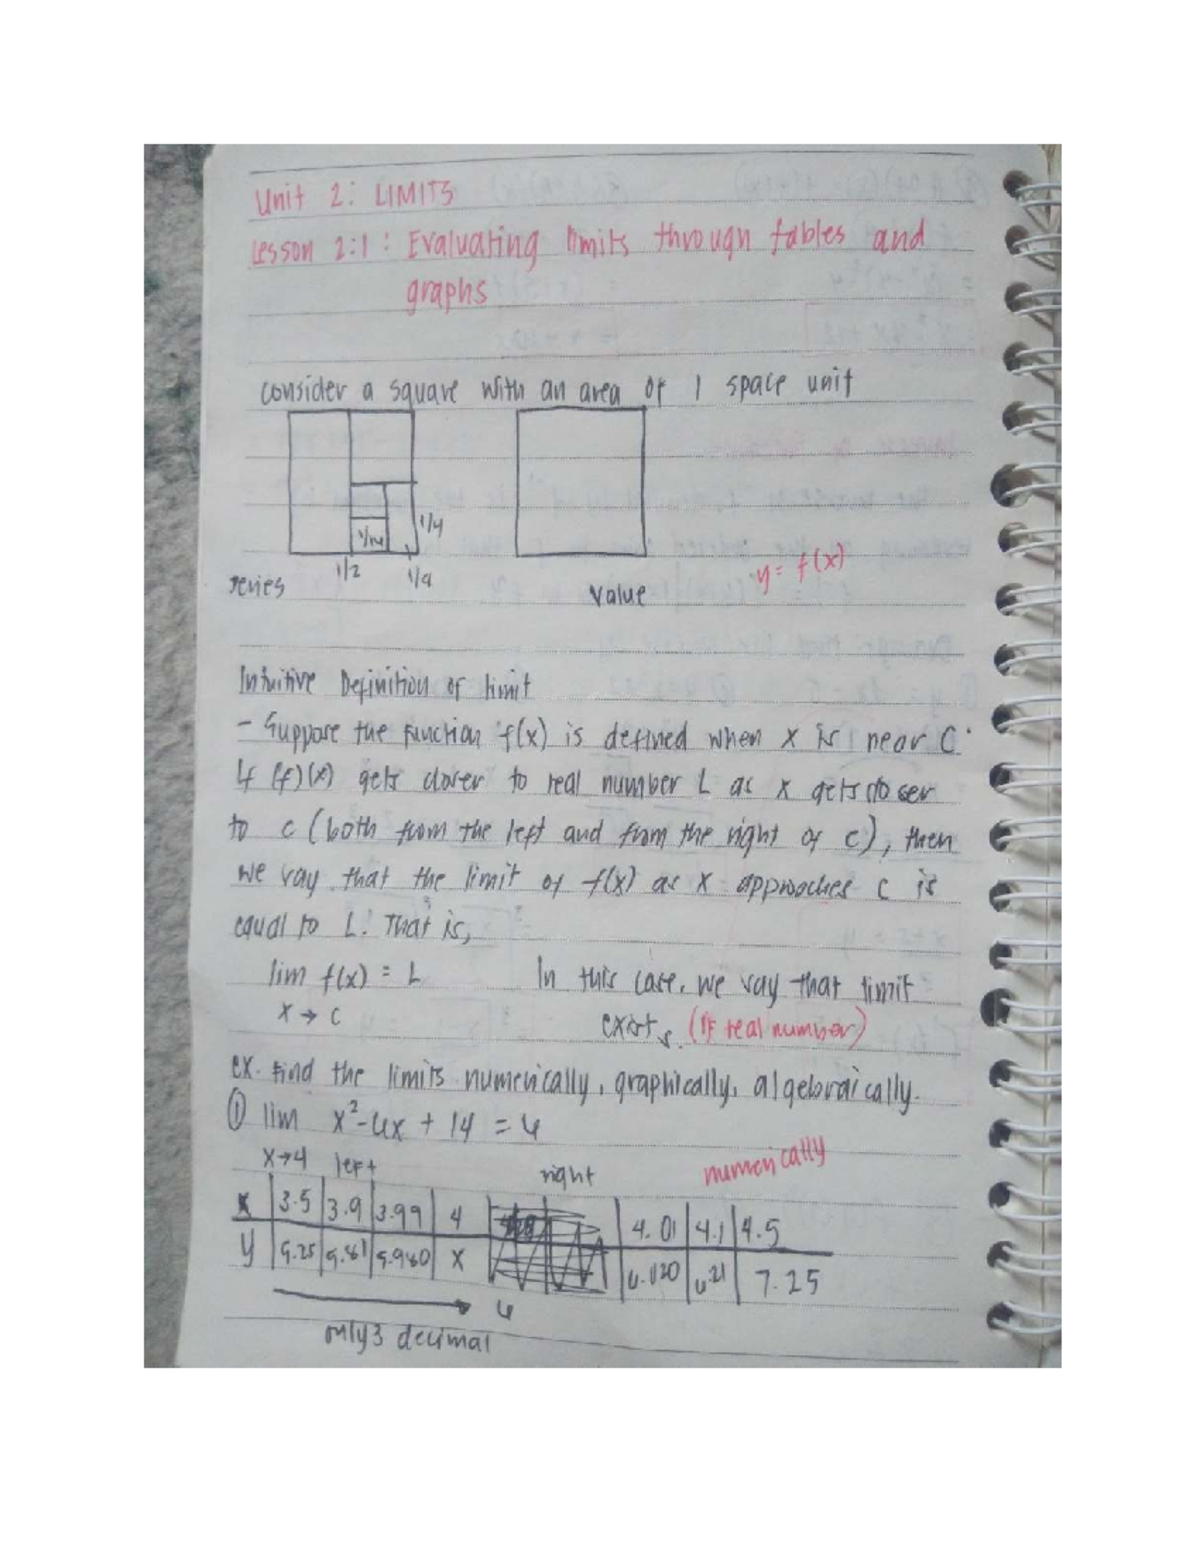 Unit 2: LIMITS
Lesson 2:1: Evaluating limits through tables and
graphs
consider a square with an area of 1 space unit
1/4
1/2 1/4
series
value
y = f(x)
Intuitive Definition of limit
- Suppose the function f(x) is defined when x is near C.
If (f)(x) gets closer to real number L as x gets closer
to c (both from the left and from the right of c), then
we say that the limit of f(x) as x approaches c is
equal to L. That is,
lim f(x) = L In this case, we say that limit
x → c exists. (If real number)
ex. Find the limits numerically, graphically, algebraically.
① lim x²-6x + 14 = 6
x→4 left right numerically
x 3.5 3.9 3.99 4 4.01 4.1 4.5
y 5.25 5.81 5.980 x 6.020 6.21 7.25
6
only 3 decimal